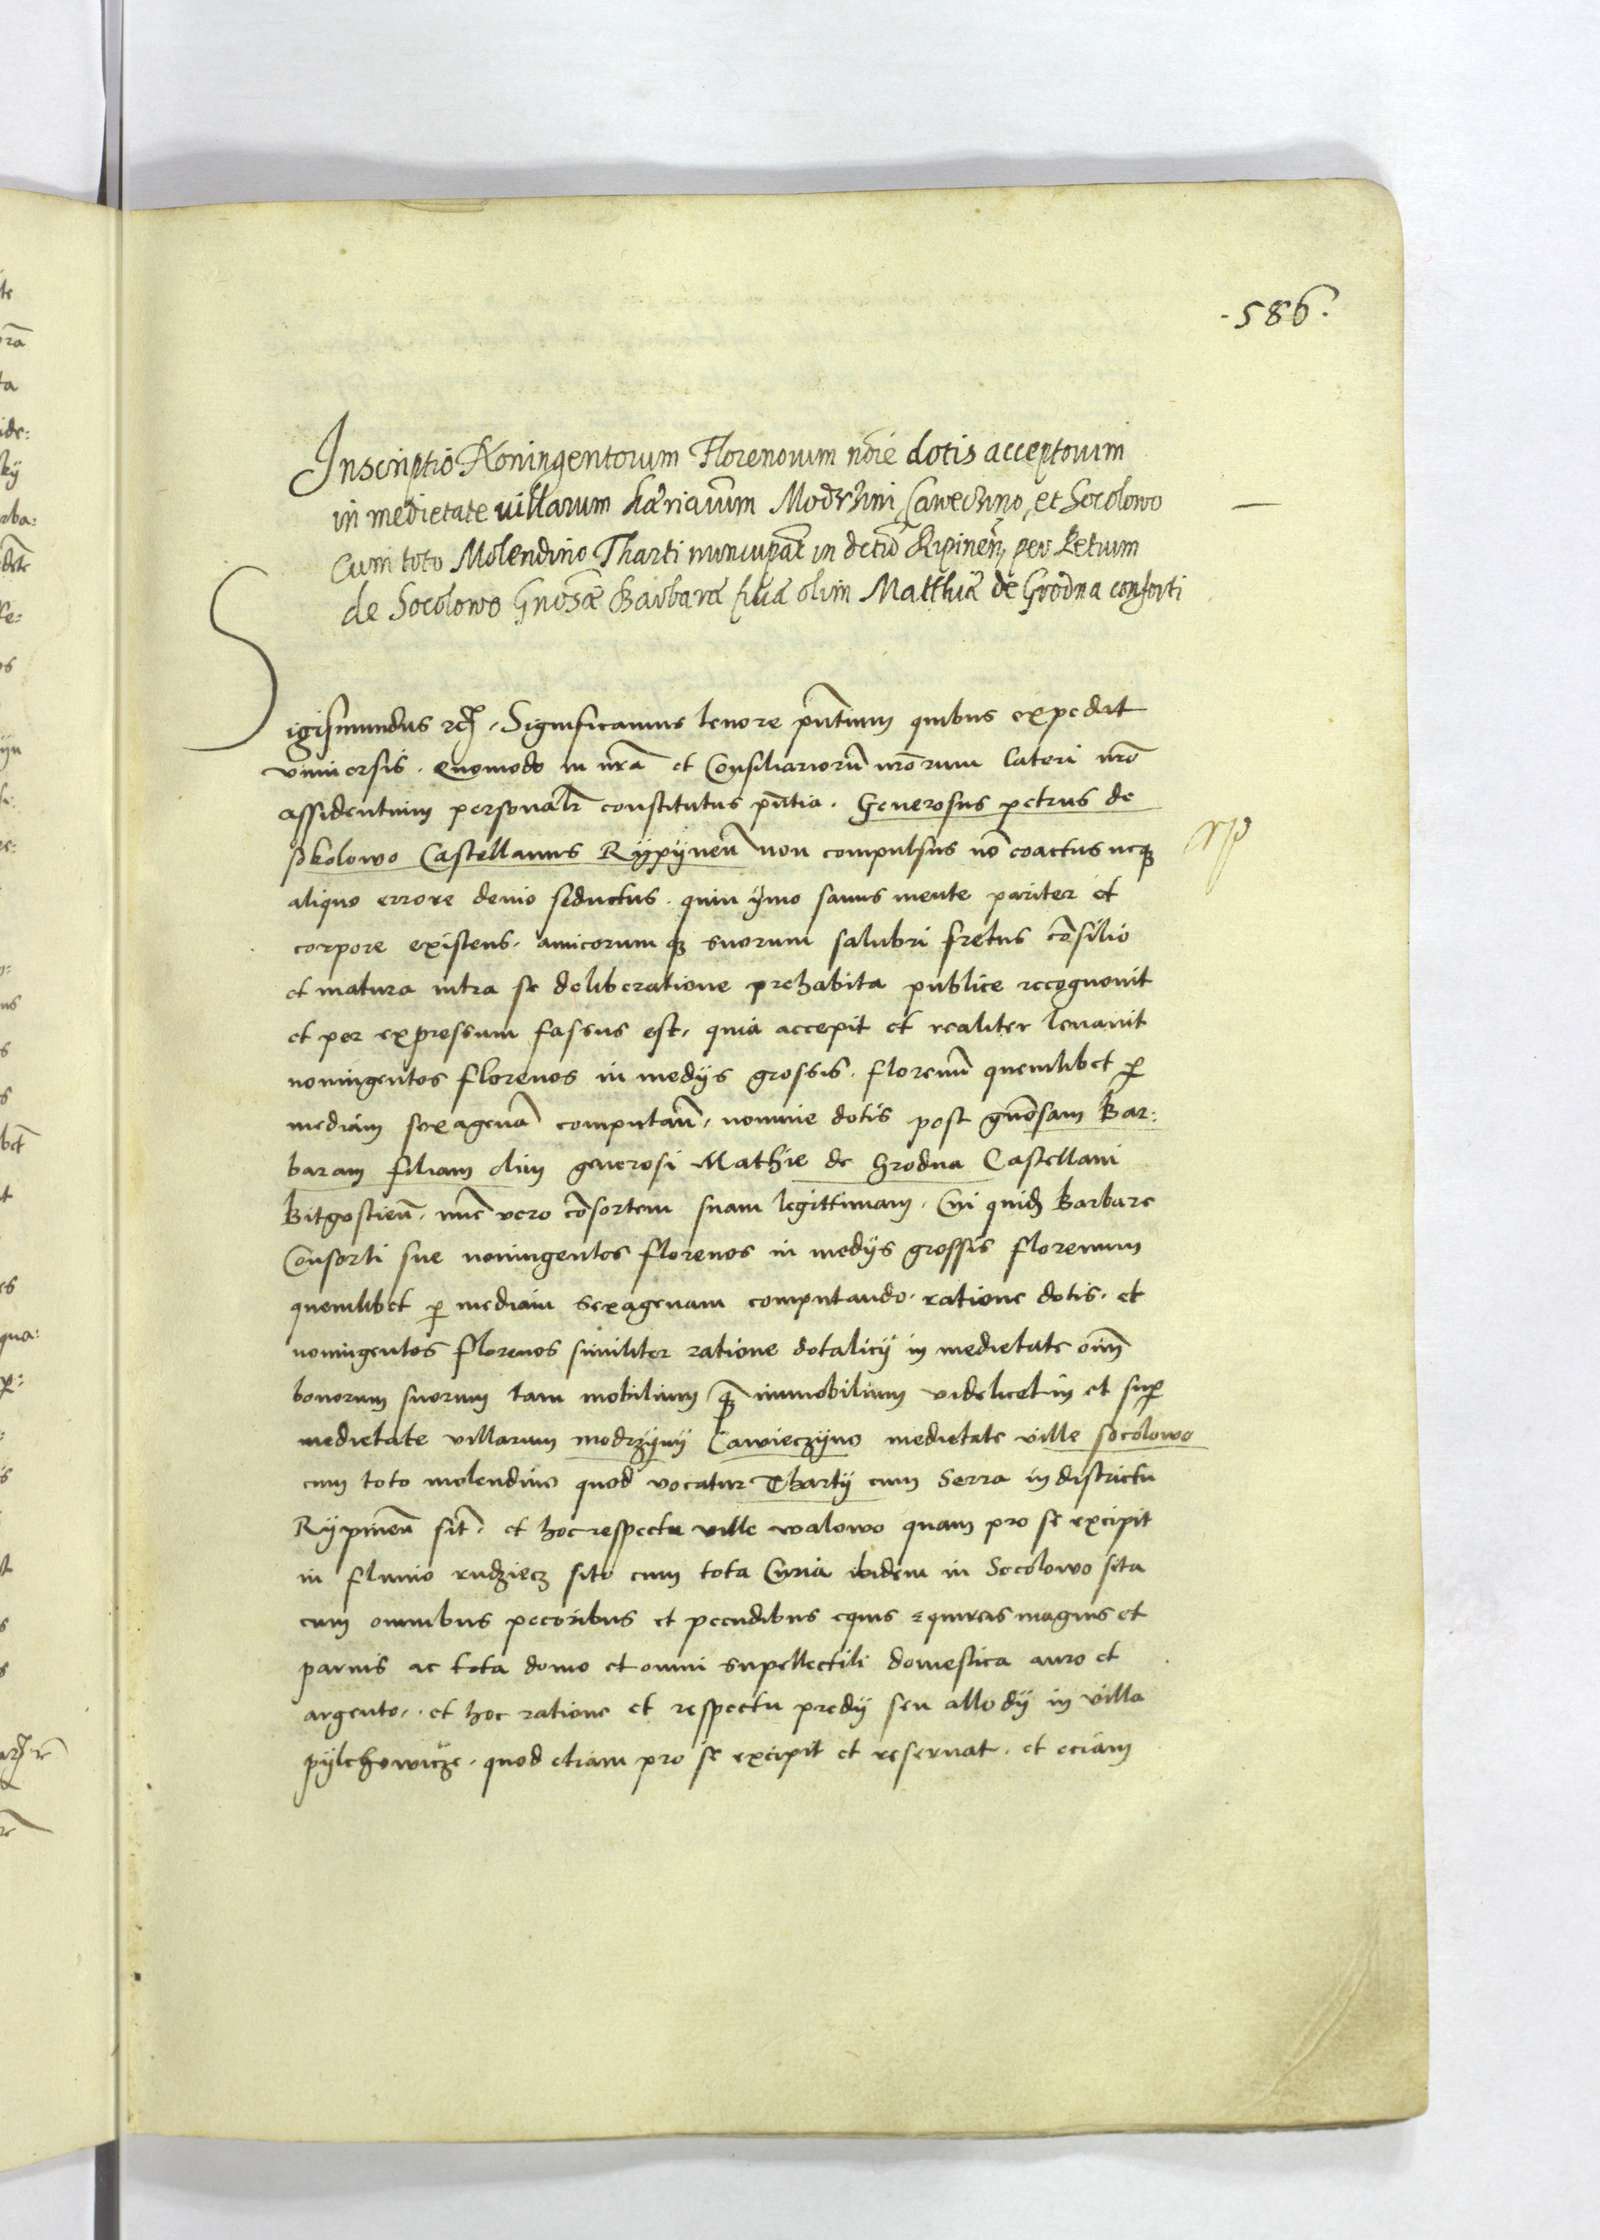 -586.
Inscriptio Noningentorum Florenorum nōīe dotis acceptorum
in medietate villarum hæricarum Modrzini, Caweczino, et Socolowo
Cum toto Molendino Tharti nuncupāt in dctū Ripineñ, per Petrum
de Socolowo Gnōsæ Barbaræ filiæ olim Matthiæ de Grodna consorti
Sigismundus rcȝ. Significamus tenore pñtium quibus expedit
vniuersis. Quomodo in nrā et Consiliariorū nrōrum lateri nrō
assidentium personalr̄ constitutus pñtia. Generosus petrus de
sokolowo Castellanus Rypyneñ non compulsus nō coactus neqȝ
aliquo errore deuio seductus. quin ymo sanus mente pariter et
corpore existens. amicorumqȝ suorum salubri fretus cōsilio
et matura intra se deliberatione prehabita publice recognouit
et per expressum fassus est, quia accepit et realiter leuauit
noningentos florenos in medys grossis. florenū quemlibet p̄
mediam sexagenā computañ. nomine dotis post gnōsam Bar:
baram filiam olim generosi Mathie de Grodna Castellani
Bitgostieñ. nūc vero cōsortem suam legittimam. Cui quidē Barbare
Consorti sue noningentos florenos in medys grossis florenum
quemlibet p̄ mediam sexagenam computando. ratione dotis. et
noningentos florenos similiter ratione dotalicy in medietate oīm
bonorum suorum tam mobilium qȝ immobilium videlicet in et sup̄
medietate villarum modrzyny Cawieczyno medietate ville socolowo
cum toto molendino quod vocatur Tharty cum Serra in districtu
Rypineñ sit̄. et hoc respectu ville walowo quam pro se excipit
in fluuio rudziecz sito cum tota Curia ibidem in Socolowo sita
cum omnibus pecoribus et pecudibus equis equireis magnis et
paruis ac tota domo et omni supellectili domestica auro et
argento. et hoc ratione et respectu predy seu allody in villa
pylchowicze. quod etiam pro se excipit et reseruat. et eciam